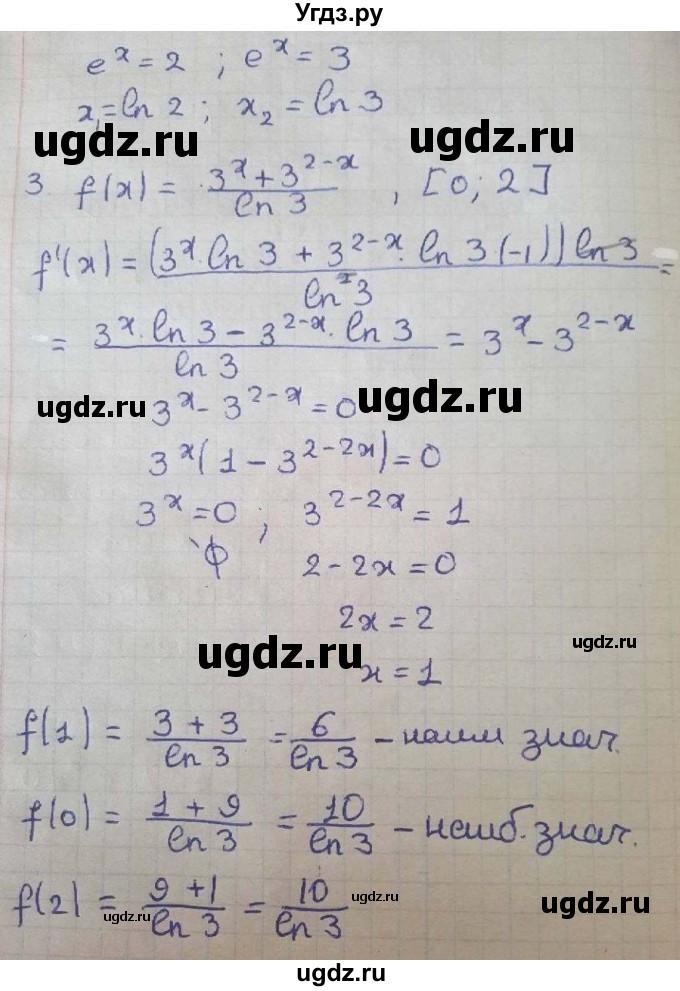 Угдз.ру
e^x = 2 ; e^x = 3
x₁ = ln 2 ; x₂ = ln 3
ugdz.ru ugdz.ru
3. f(x) = (3^x + 3^(2-x)) / ln 3 , [0; 2]
f'(x) = (3^x · ln 3 + 3^(2-x) · ln 3 (-1)) ln 3 / ln² 3 =
= (3^x · ln 3 - 3^(2-x) · ln 3) / ln 3 = 3^x - 3^(2-x)
ugdz.ru ugdz.ru
3^x - 3^(2-x) = 0
3^x (1 - 3^(2-2x)) = 0
3^x = 0 ; 3^(2-2x) = 1
ϕ 2 - 2x = 0
2x = 2
ugdz.ru ugdz.ru
x = 1
f(1) = (3 + 3) / ln 3 = 6 / ln 3 - наим знач.
f(0) = (1 + 9) / ln 3 = 10 / ln 3 - наиб. знач.
f(2) = (9 + 1) / ln 3 = 10 / ln 3
ugdz.ru ugdz.ru ugdz.ru
ugdz.ru